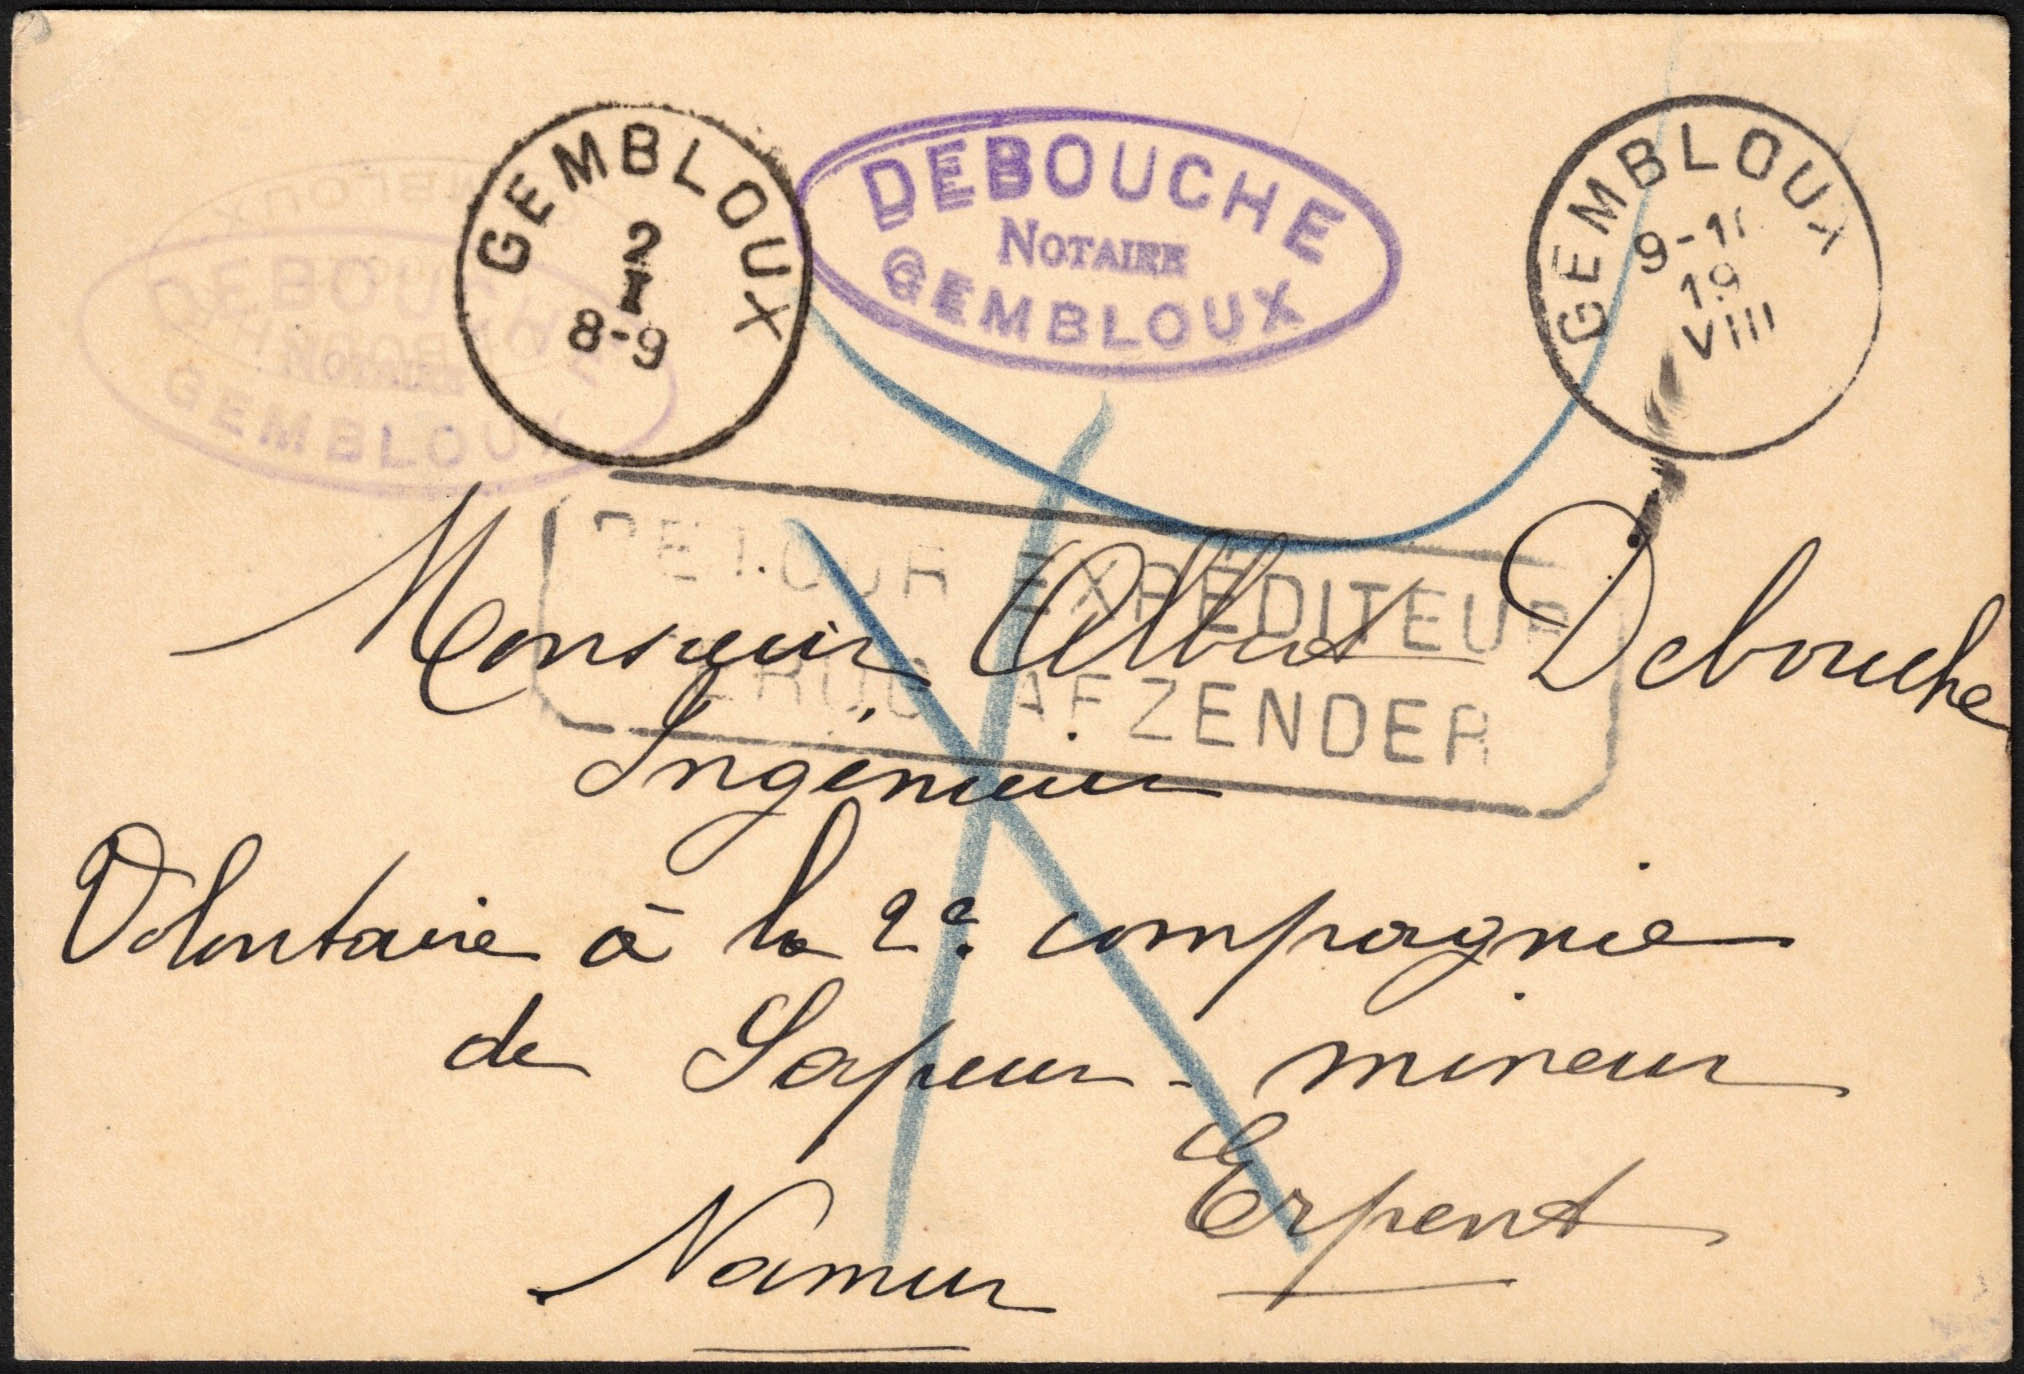 GEMBLOUX
2
I
8-9
DEBOUCHE
NOTAIRE
GEMBLOUX
GEMBLOUX
9-1
19
VIII
DEBOUCHE
NOTAIRE
GEMBLOUX
RETOUR EXPÉDITEUR
TERUG AFZENDER
Monsieur Albert Debouche
Ingénieur
Volontaire à la 2e compagnie
de Sapeur-mineur
Erpent
Namur